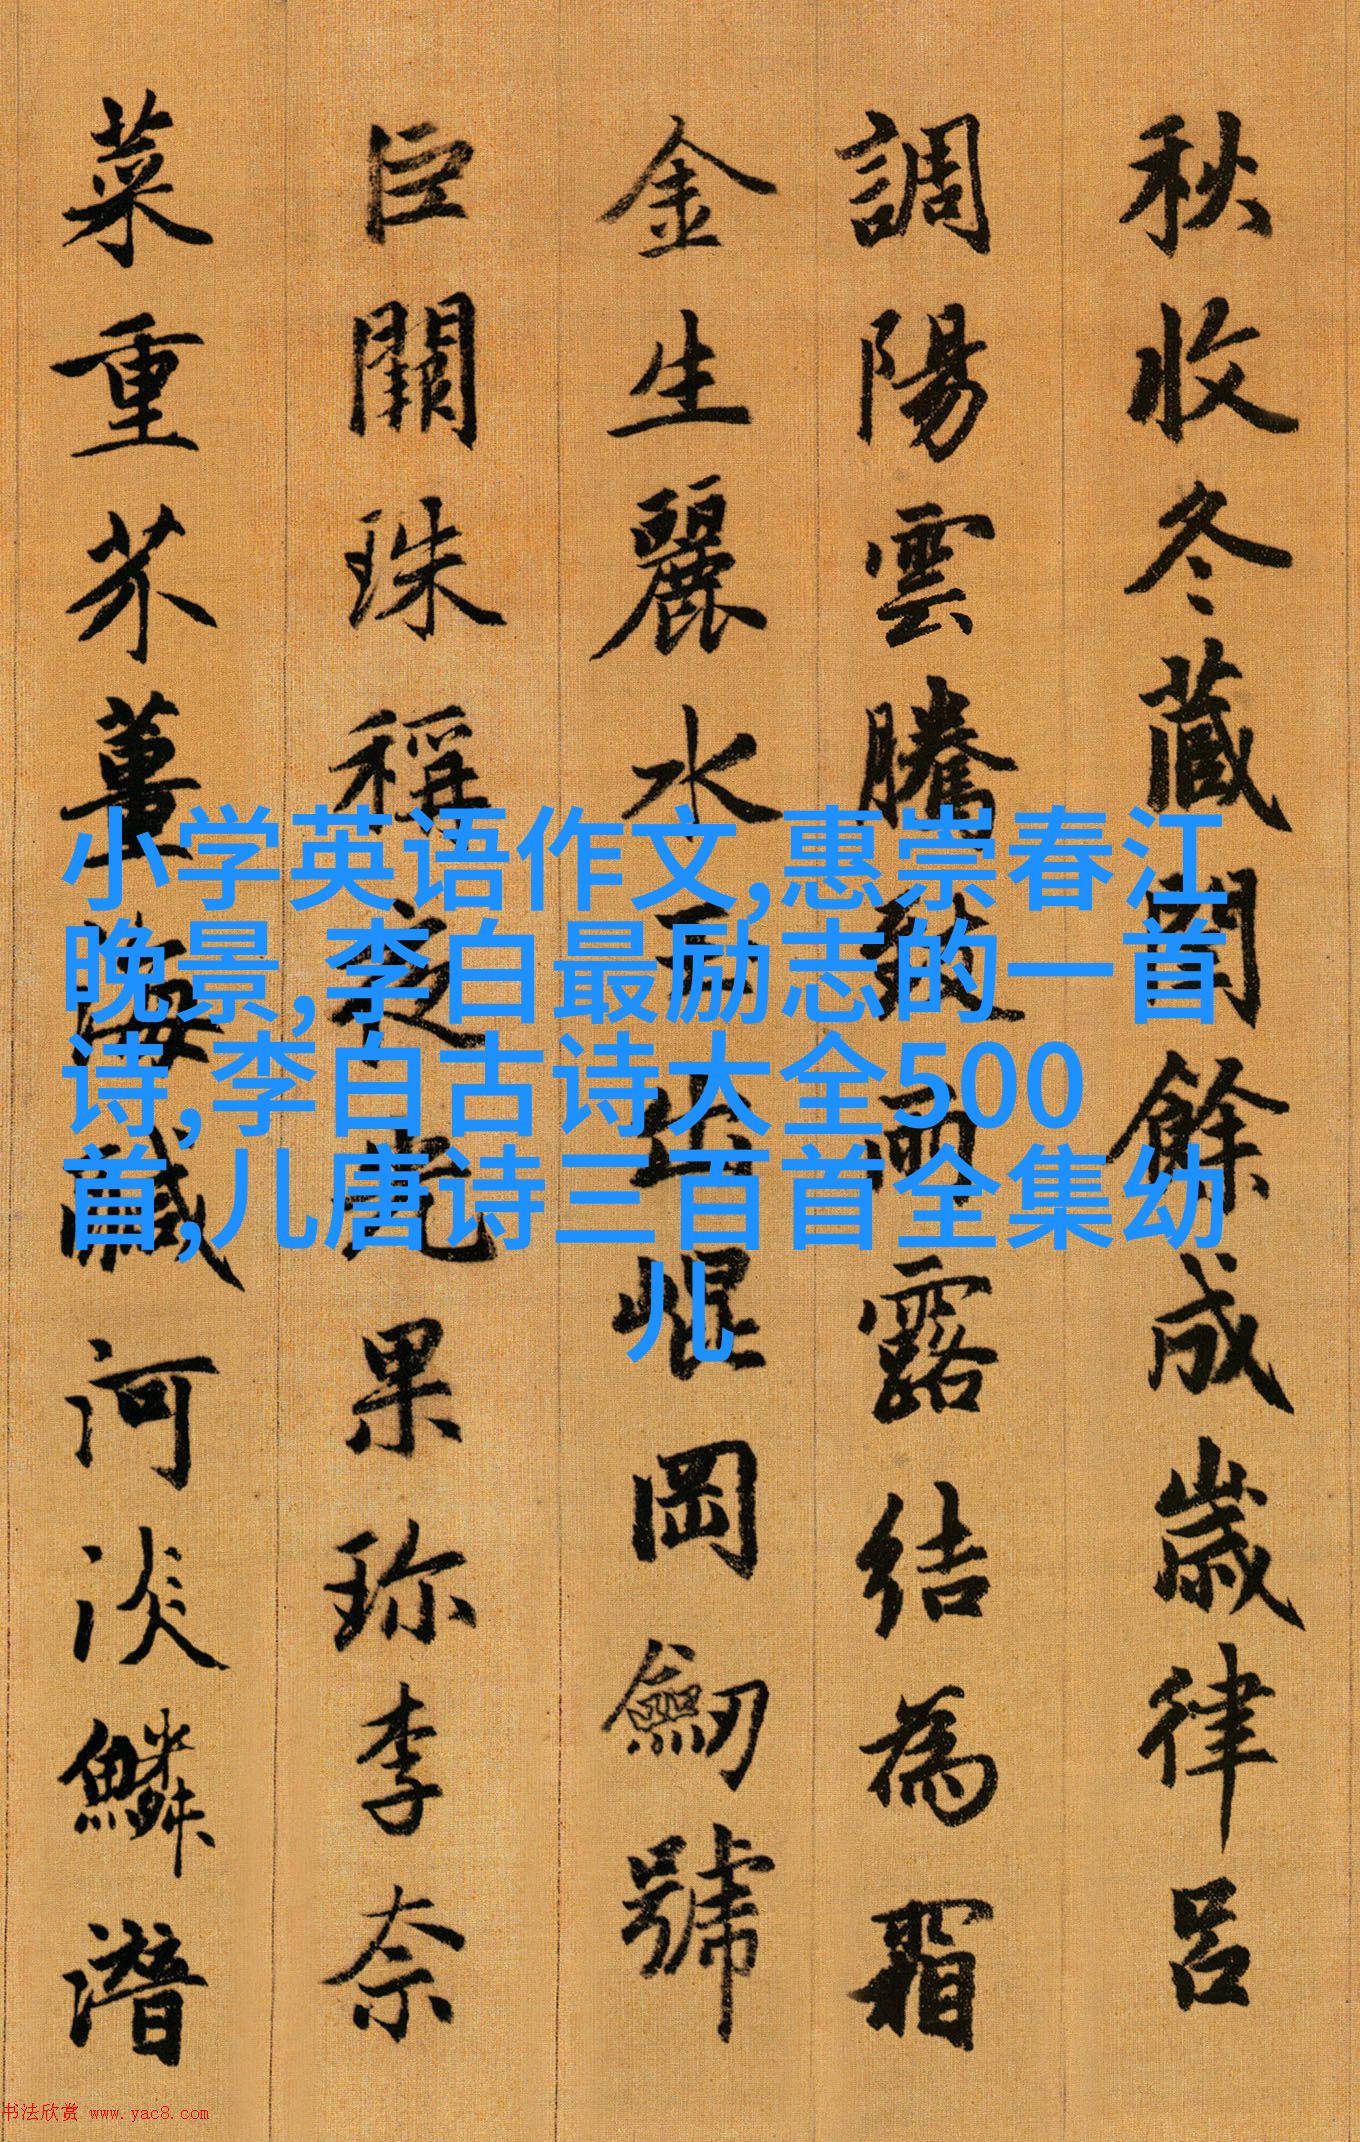 秋收冬藏閏餘成歲律呂
調陽雲騰致雨露結為霜
金生麗水玉出崐岡劒號
巨闕珠稱夜光果珍李奈
菜重芥薑海鹹河淡鱗潛
小学英语作文,惠崇春江
晚景,李白最励志的一首
诗,李白古诗大全500
首,儿唐诗三百首全集幼
儿
书法欣赏 www.yac8.com